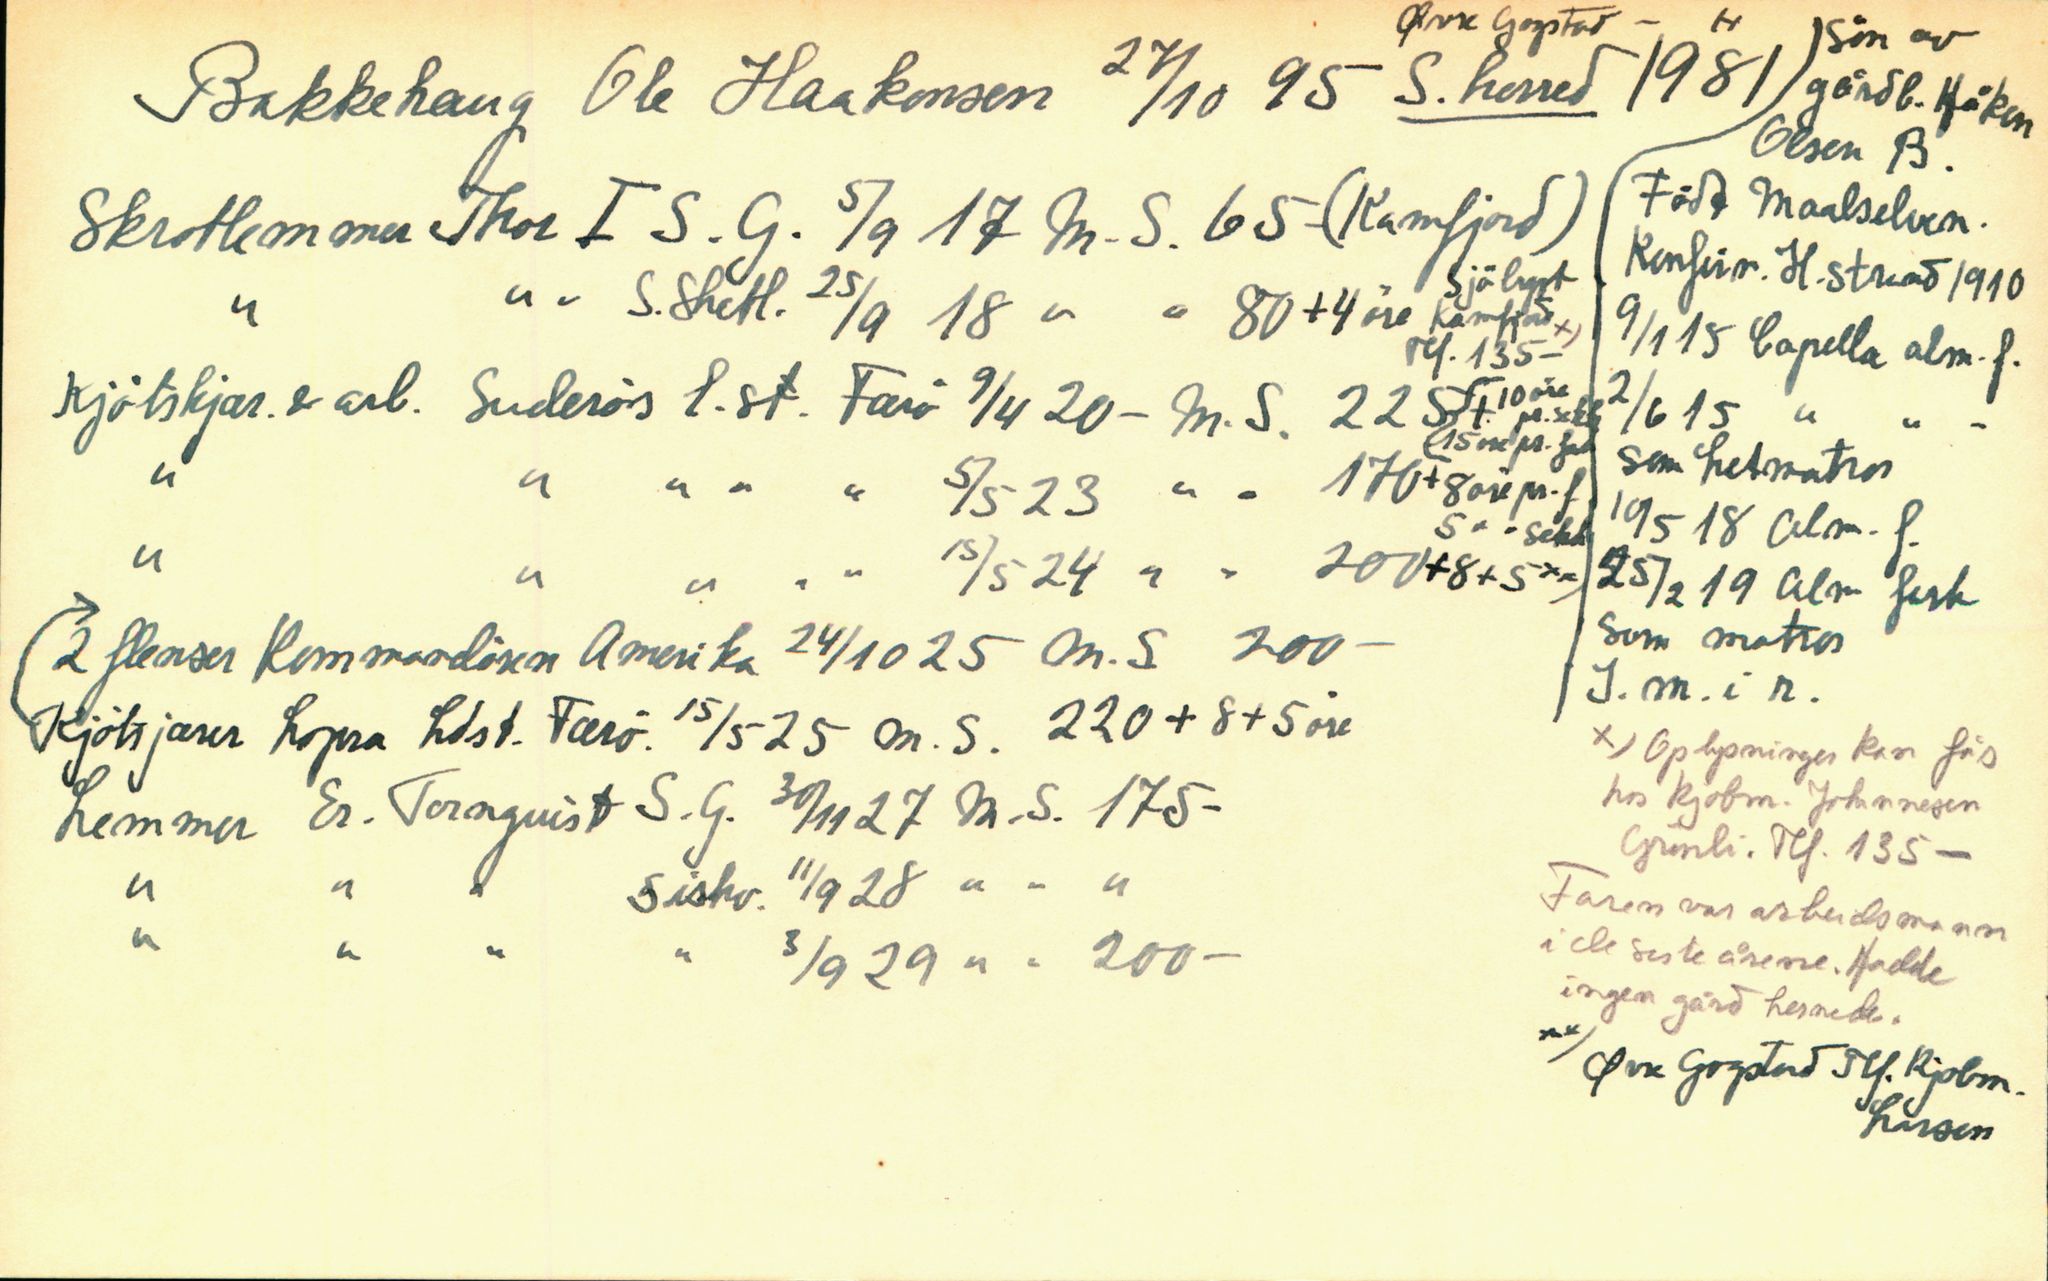 Øvre Gogstad -
Bakkehaug Ole Haakonsen 27/10 95 S. herred 1981
Skrotlemmer Thor I S. G. 5/9 17 M. S. 65 - (Kamfjord)
" " " S. Shetl. 25/9 18 " " 80 + 4 öre Sjölyst
Kamfjord x)
Tlf. 135 -
Kjötskjær. & arb. Suderös l. st. Færö 9/4 20 - M. S. 225 + 10 öre
pr. sekk
(15 öre pr. fat
" " " " " 5/5 23 " " 170 + 8 öre pr. f.
5 " " sekk
" " " " " 15/5 24 " " 200 + 8 + 5 xx)
2 flenser Kommandören Amerika 24/10 25 M. S. 200 -
Kjötsjærer Lopra Ldst. Færö. 15/5 25 M. S. 220 + 8 + 5 öre
Lemmer Er. Tornquist S. G. 30/11 27 M. S. 175 -
" " " Sishv. 11/9 28 " " "
" " " " 3/9 29 " " 200 -
Sön av
gårdb. Håken
Olsen B.
Född Maalselven.
Konfirm. H. strand 1910
9/1 15 Capella alm. f.
2/6 15 " " "
som letmatros
10/5 18 Alm. f.
25/2 19 Alm fark
som matros
I. m. i r.
x) Oplysninger kan fås
hos kjøbm. Johannesen
Grönli. Tlf. 135 -
Faren var arbeidsmann
i de siste årene. Hadde
ingen gård hernede.
xx) Øvre Gogstad Tlf. Kjøbm.
Larsen